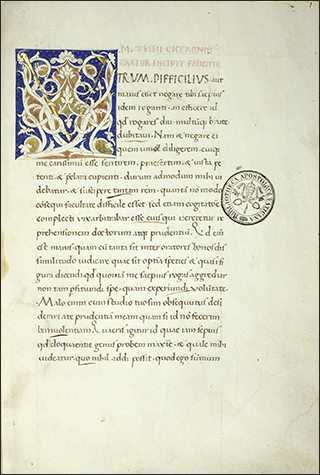 M. TVLLII CICERONIS
ORATOR INCIPIT FELICITER
VTRVM. DIFFICILIVS aut
maius esset negare tibi saepius
idem roganti. an efficere id
qd rogares diu multuq; brute
dubitaui. Nam & negare ei
quem unice diligerem. cuiq;
me carissimu esse sentirem. praesertim. & iusta pe
tenti. & p̃clara cupienti. durum admodum mihi ui
debatur. & suscipere tantam rem. quanta no modo
cosequi facultate difficile esset. sed etiam cogitatoe
complecti uix arbitrabar esse eius qui uereretur re
prehensionem doctorum atq; prudentiu. Qd eni
est maius. quam cu tanta sit inter oratores bonos dis
similitudo iudicare quae sit optia species. & quasi fi
gura dicendi. qd quoniã me saepius rogas aggrediar
non tam pficiundi spe. quam experiundi uolutate.
Malo enim cum studio tuo sim obsequutus desi
derari a te prudentiã meam. quam si id nõ fecerim
beniuolentiam. Quaeris igitur id quae iam saepius
qd eloquentiae genus probem maxie. & quale mihi
uideatur. quo nihil addi possit. quod ego summum
BIBLIOTHECA APOSTOLICA VATICANA